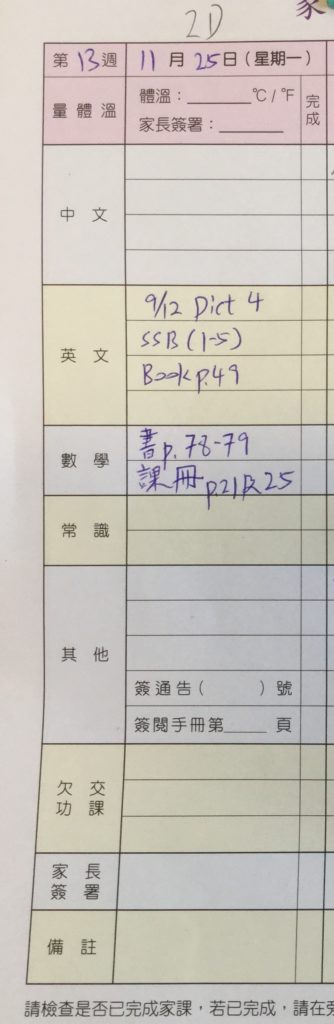 家
2D
第 13 週 11 月 25 日 (星期一)
量體溫 體溫：______ °C / °F 完成
家長簽署：______
中文
英文 9/12 Dict 4
SSB (1-5)
Book p.49
數學 書p.78-79
課冊p21及25
常識
其他
簽通告( )號
簽閱手冊第____頁
欠交功課
家長簽署
備註
請檢查是否已完成家課，若已完成，請在